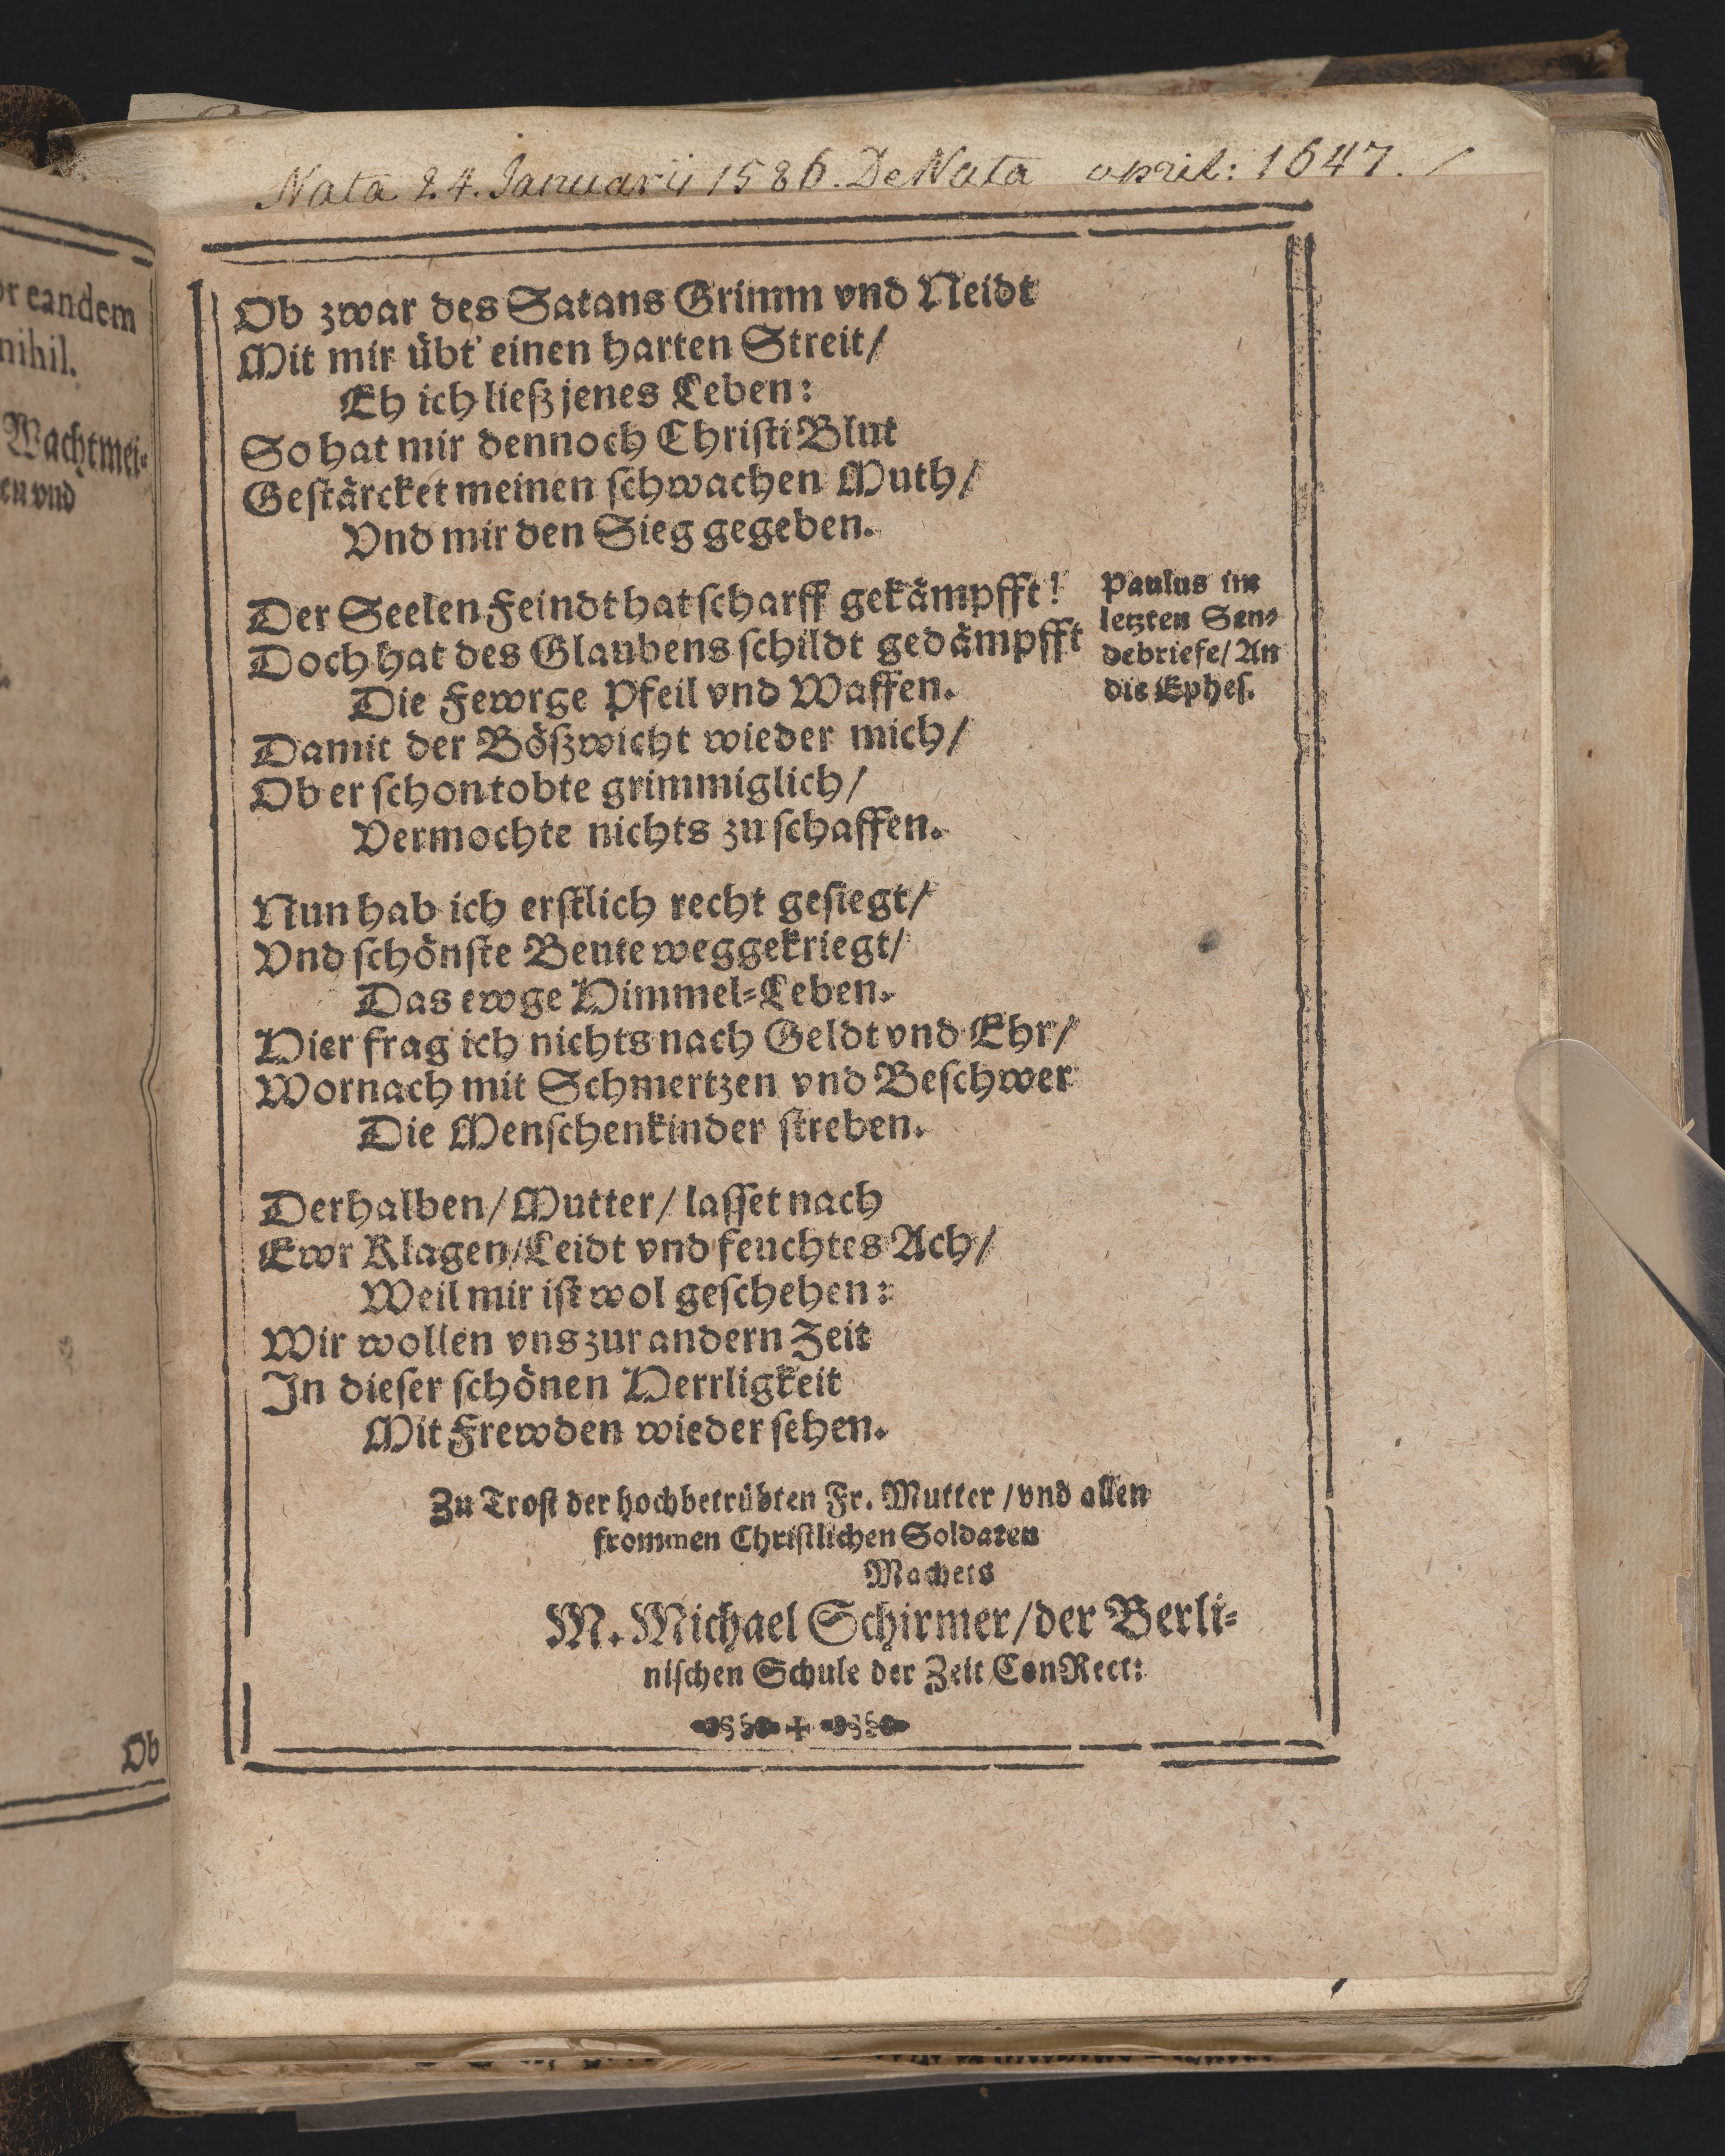 or eandem
nihil.
Wachtmei⸗
en vnd
Ob
Nata 24. Januarij 1586. DeNata april: 1647. /
Ob zwar des Satans Grimm vnd Neidt
Mit mir übt' einen harten Streit/
Eh ich ließ jenes Leben:
So hat mir dennoch Christi Blut
Gestärcket meinen schwachen Muth/
Vnd mir den Sieg gegeben.
Der Seelen Feindt hat scharff gekämpfft!
Doch hat des Glaubens schildt gedämpfft
Die Fewrge Pfeil vnd Waffen.
Damit der Bößwicht wieder mich/
Ob er schon tobte grimmiglich/
Vermochte nichts zu schaffen.
Paulus im
letzten Sen⸗
debriefe/ An
die Ephes.
Nun hab ich erstlich recht gesiegt/
Vnd schönste Beute weggekriegt/
Das ewge Himmel⸗Leben.
Hier frag ich nichts nach Geldt vnd Ehr/
Wornach mit Schmertzen vnd Beschwer
Die Menschenkinder streben.
Derhalben/ Mutter/ lasset nach
Ewr Klagen/ Leidt vnd feuchtes Ach/
Weil mir ist wol geschehen:
Wir wollen vns zur andern Zeit
In dieser schönen Herrligkeit
Mit Frewden wieder sehen.
Zu Trost der hochbetrübten Fr. Mutter / vnd allen
frommen Christlichen Soldaten
Machets
M. Michael Schirmer/ der Berli⸗
nischen Schule der Zeit ConRect: